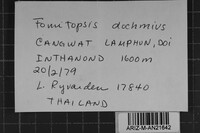 Fomitopsis dochmius
CANGWAT LAMPHUN, DOI
INTHANOND 1600m
20/2/79
L. Ryvarden 17840
THAILAND
ARIZ-M-AN21642